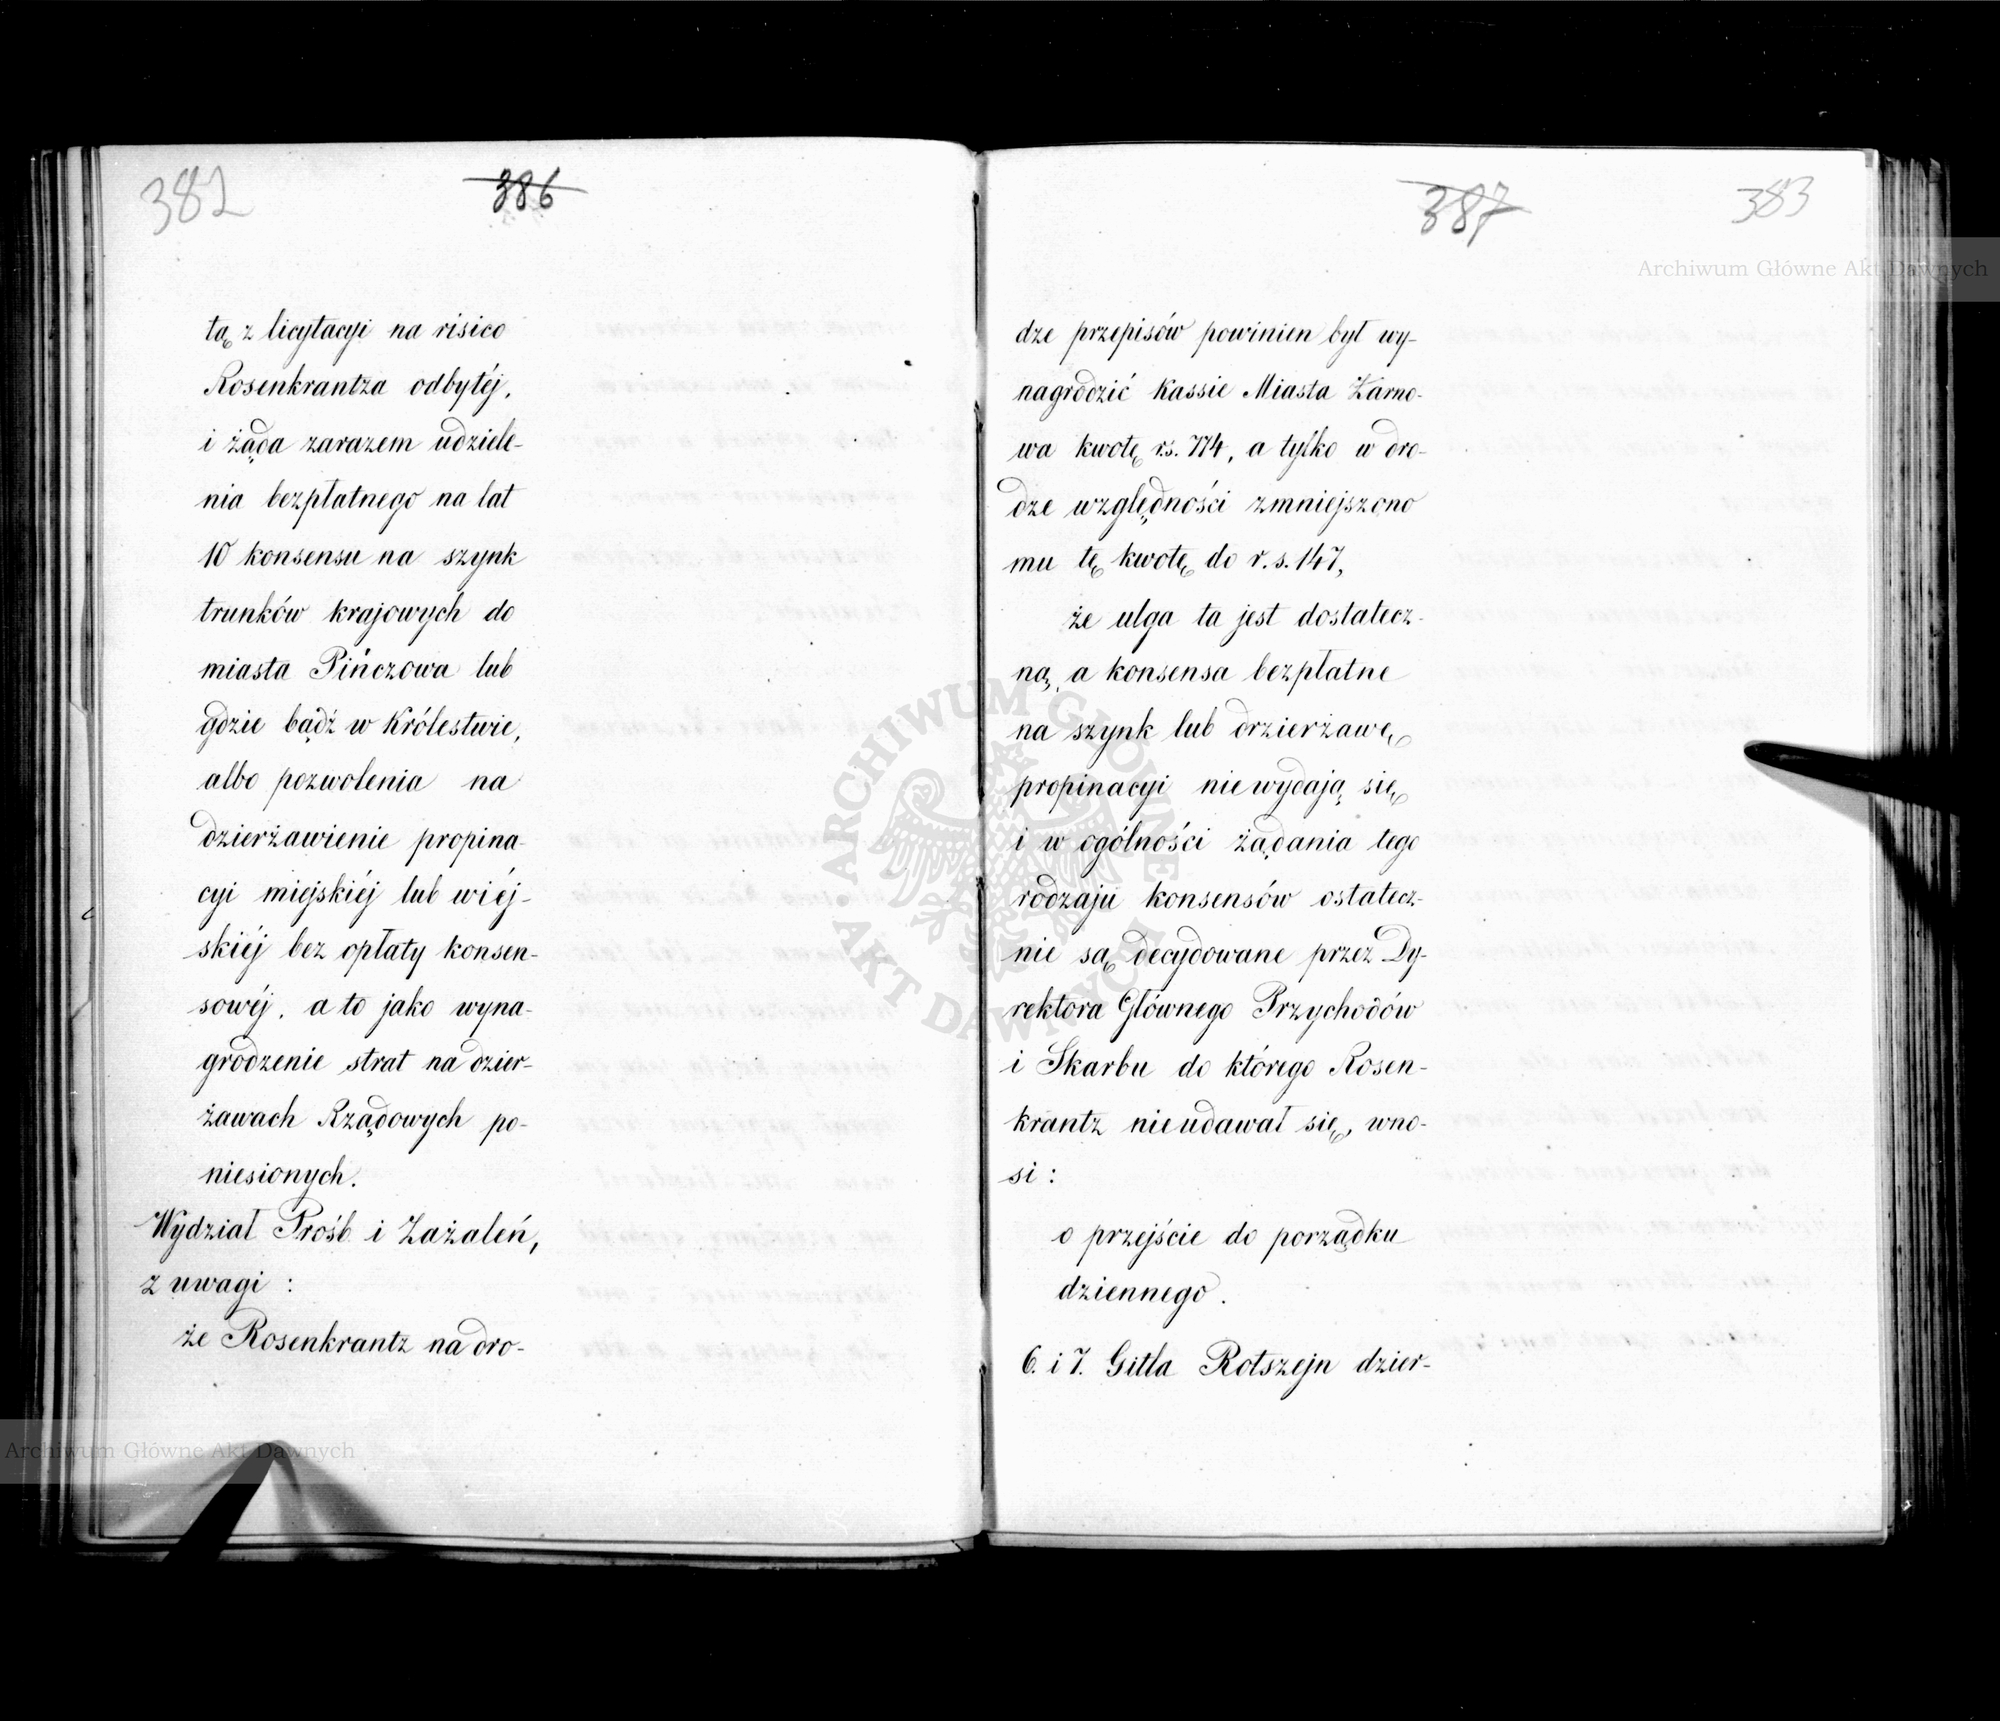 382
386
tą z licytacyi na risico
Rosenkrantza odbytéj,
i żąda zarazem udziele-
nia bezpłatnego na lat
10 konsensu na szynk
trunków krajowych do
miasta Pińczowa lub
gdzie bądź w Królestwie,
albo pozwolenia na
dzierżawienie propina-
cyi miejskiéj lub wiéj-
skiéj bez opłaty konsen-
sowéj, a to jako wyna-
grodzenie strat na dzier-
żawach Rządowych po-
niesionych.
Wydział Prośb i Zażaleń,
z uwagi :
że Rosenkrantz na dro-
387
383
dze przepisów powinien był wy-
nagrodzić Kassie Miasta Żarno-
wa kwotę rs. 774, a tylko w dro-
dze względności zmniejszono
mu tę kwotę do r. s. 147,
że ulga ta jest dostatecz-
ną, a konsensa bezpłatne
na szynk lub dzierżawę
propinacyi nie wydają się
i w ogólności żądania tego
rodzaju konsensów ostatecz-
nie są decydowane przez Dy-
rektora Głównego Przychodów
i Skarbu do którego Rosen-
krantz nie udawał się, wno-
si :
o przejście do porządku
dziennego.
6. i 7. Gitla Rotszejn dzier-
Archiwum Główne Akt Dawnych
Archiwum Główne Akt Dawnych
ARCHIWUM GŁÓWNE
AKT DAWNYCH